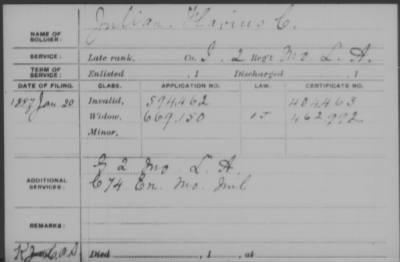 Julian, Flavius C.
NAME OF SOLDIER:
SERVICE: Late rank, Co. G, 2 Reg't Mo L. A.
TERM OF SERVICE: Enlisted , 1 Discharged , 1
DATE OF FILING. CLASS. APPLICATION NO. LAW. CERTIFICATE NO.
1887 Jan 20 Invalid, 594462 404463
Widow, 669,150 462,992
Minor,
ADDITIONAL SERVICES: G 2 Mo L. A
C 74 En. Mo. Mil
REMARKS:
Died , 1 , at